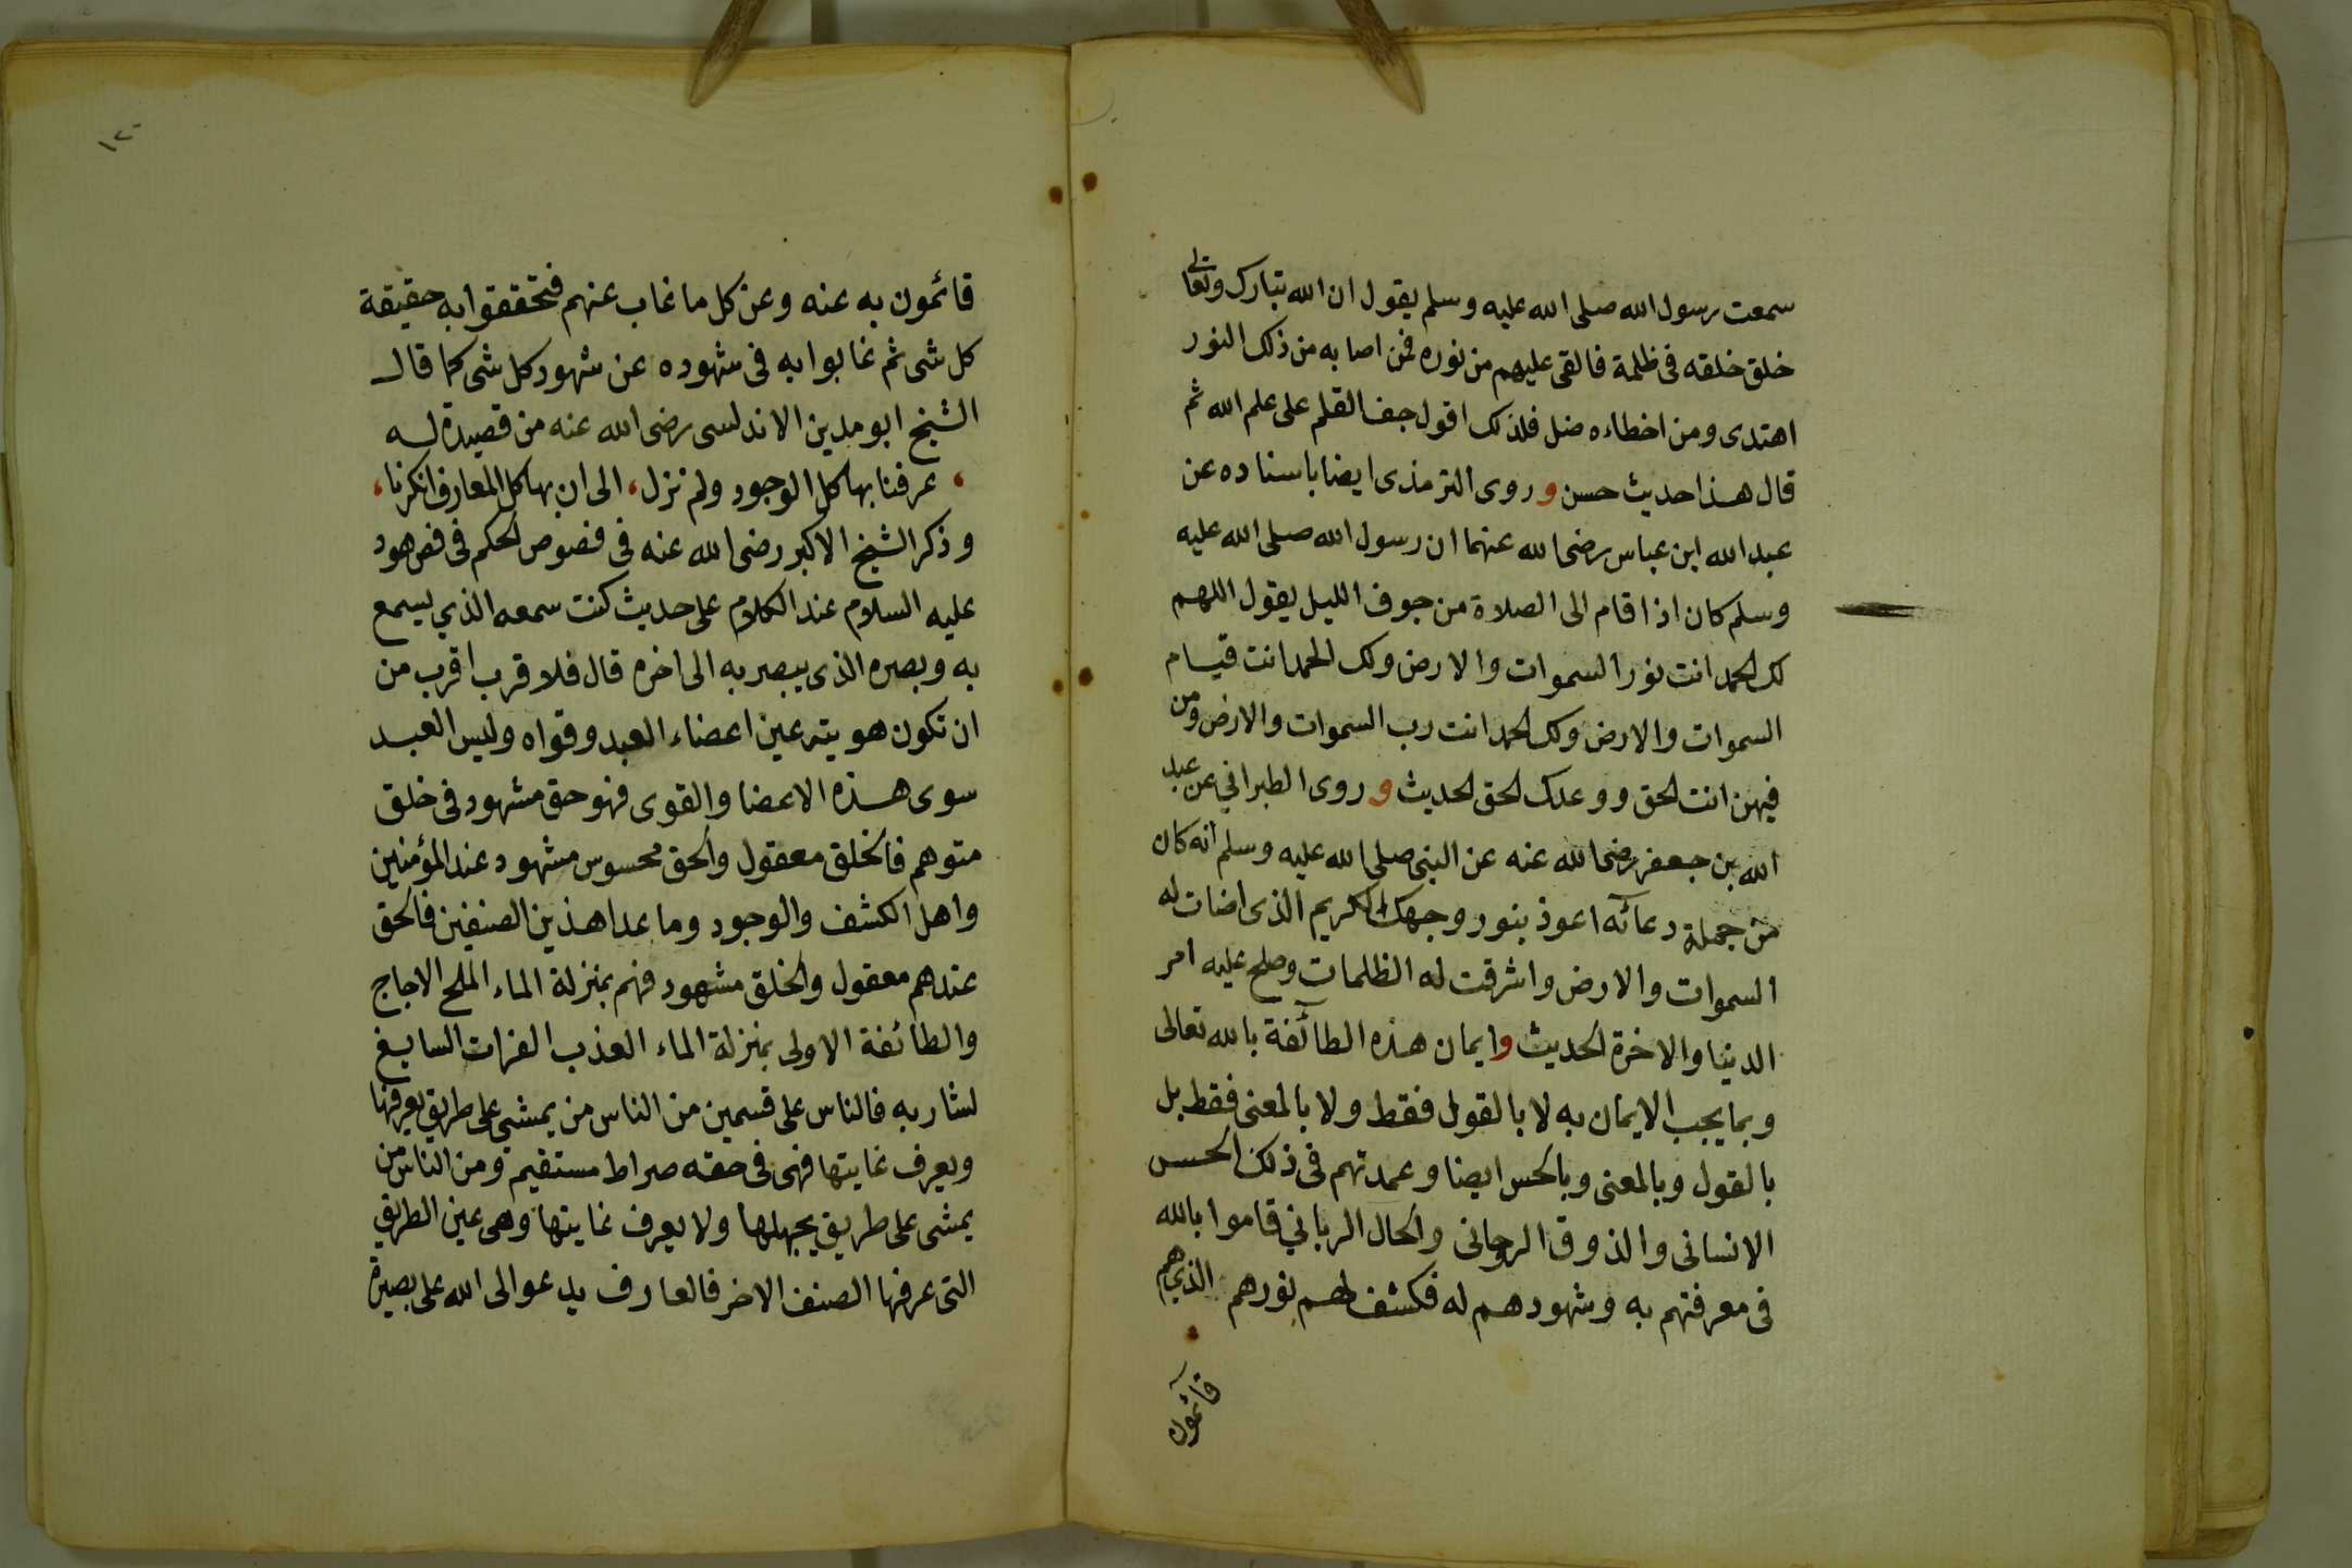 سمعت رسول الله صلى الله عليه وسلم يقول ان الله تبارك وتعالى
خلق خلقه فى ظلمة فالقى عليهم من نوره فمن اصابه من ذلك النور
اهتدى ومن اخطاءه ضل فلذلك اقول جف القلم على علم الله ثم
قال هذا حديث حسن وروى الترمذى ايضا باسناده عن
عبد الله ابن عباس رضى الله عنهما ان رسول الله صلى الله عليه
وسلم كان اذا قام الى الصلاة من جوف الليل يقول اللهم
لك الحمد انت نور السموات والارض ولك الحمد انت قيام
السموات والارض ولك الحمد انت رب السموات والارض ومن
فيهن انت الحق ووعدك الحق الحديث وروى الطبراني عن عبد
الله بن جعفر رضى الله عنه عن النبى صلى الله عليه وسلم انه كان
من جملة دعائه اعوذ بنور وجهك الكريم الذى اضات له
السموات والارض واشرقت له الظلمات وصلح عليه امر
الدنيا والاخرة الحديث وايمان هذه الطائفة بالله تعالى
وبما يجب الايمان به لا بالقول فقط ولا بالمعنى فقط بل
بالقول وبالمعنى وبالحس ايضا وعمدتهم فى ذلك الحس
الانسانى والذوق الروحانى والحال الربانى قاموا بالله
فى معرفتهم به وشهودهم له فكشف لهم نورهم الذي هم
قائمون
١٢
قائمون به عنه وعن كل ما غاب عنهم فتحققوا به حقيقة
كل شى ثم غابوا به فى شهوده عن شهود كل شى كما قال
الشيخ ابو مدين الاندلسى رضى الله عنه من قصيدة له
، عرفنا بها كل الوجود ولم نزل ، الى ان بها كل المعارف انكرنا ،
وذكر الشيخ الاكبر رضى الله عنه فى فصوص الحكم فى فص هود
عليه السلام عند الكلام على حديث كنت سمعه الذي يسمع
به وبصره الذى يبصر به الى اخره قال فلا قرب اقرب من
ان تكون هويته عين اعضاء العبد وقواه وليس العبد
سوى هذه الاعضا والقوى فهو حق مشهود فى خلق
متوهم فالخلق معقول والحق محسوس مشهود عند المؤمنين
واهل الكشف والوجود وما عدا هذين الصنفين فالحق
عندهم معقول والخلق مشهود فهم بمنزلة الماء الملح الاجاج
والطائفة الاولى بمنزلة الماء العذب الفرات السايغ
لشاربه فالناس على قسمين من الناس من يمشى على طريق يعرفها
ويعرف غايتها فهى فى حقه صراط مستقيم ومن الناس من
يمشى على طريق يجهلها ولا يعرف غايتها وهى عين الطريق
التى عرفها الصنف الاخر فالعارف يدعو الى الله على بصيرة